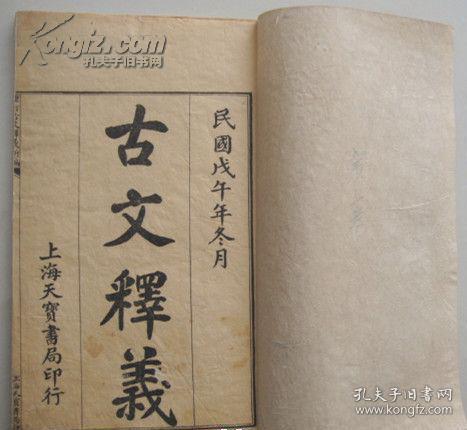 民國戊午年冬月
古文釋義
上海天寶書局印行
Kongfz.com
孔夫子旧书网
孔夫子旧书网
www.kongfz.com